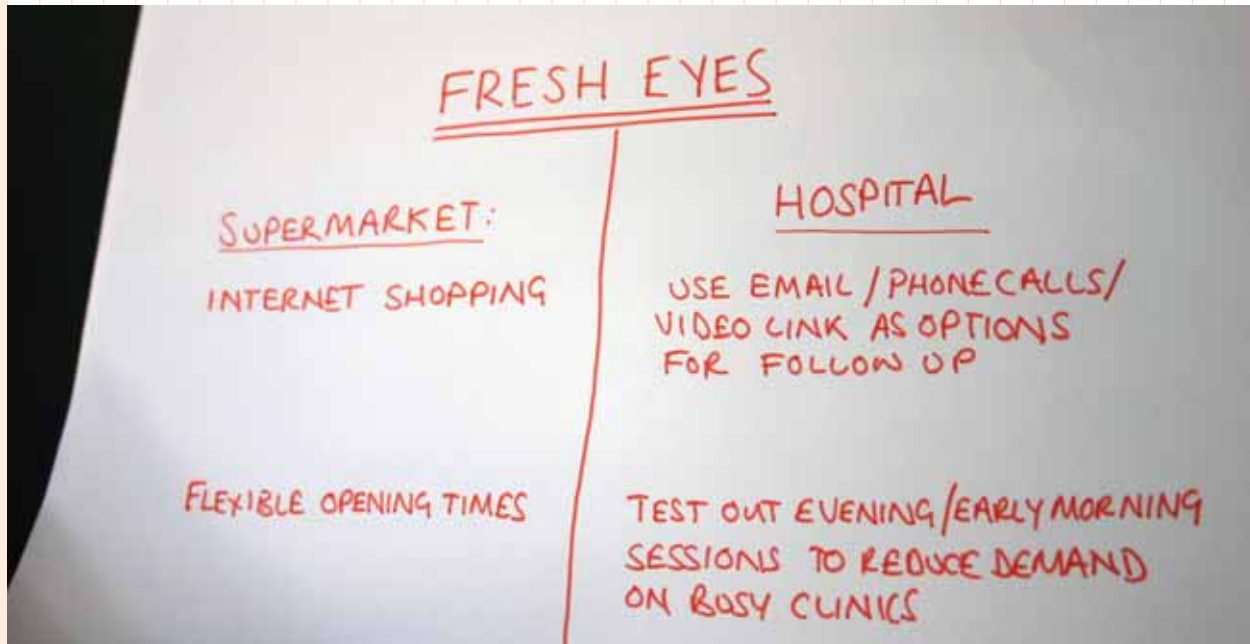 FRESH EYES
SUPERMARKET:
INTERNET SHOPPING
FLEXIBLE OPENING TIMES
HOSPITAL
USE EMAIL / PHONECALLS/
VIDEO LINK AS OPTIONS
FOR FOLLOW UP
TEST OUT EVENING/EARLY MORNING
SESSIONS TO REDUCE DEMAND
ON BUSY CLINICS